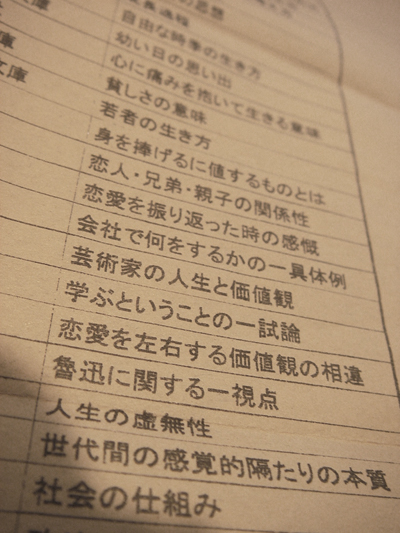 自由な時季の生き方
幼い日の思い出
心に痛みを抱いて生きる意味
貧しさの意味
若者の生き方
身を捧げるに値するものとは
恋人・兄弟・親子の関係性
恋愛を振り返った時の感慨
会社で何をするかの一具体例
芸術家の人生と価値観
学ぶということの一試論
恋愛を左右する価値観の相違
魯迅に関する一視点
人生の虚無性
世代間の感覚的隔たりの本質
社会の仕組み